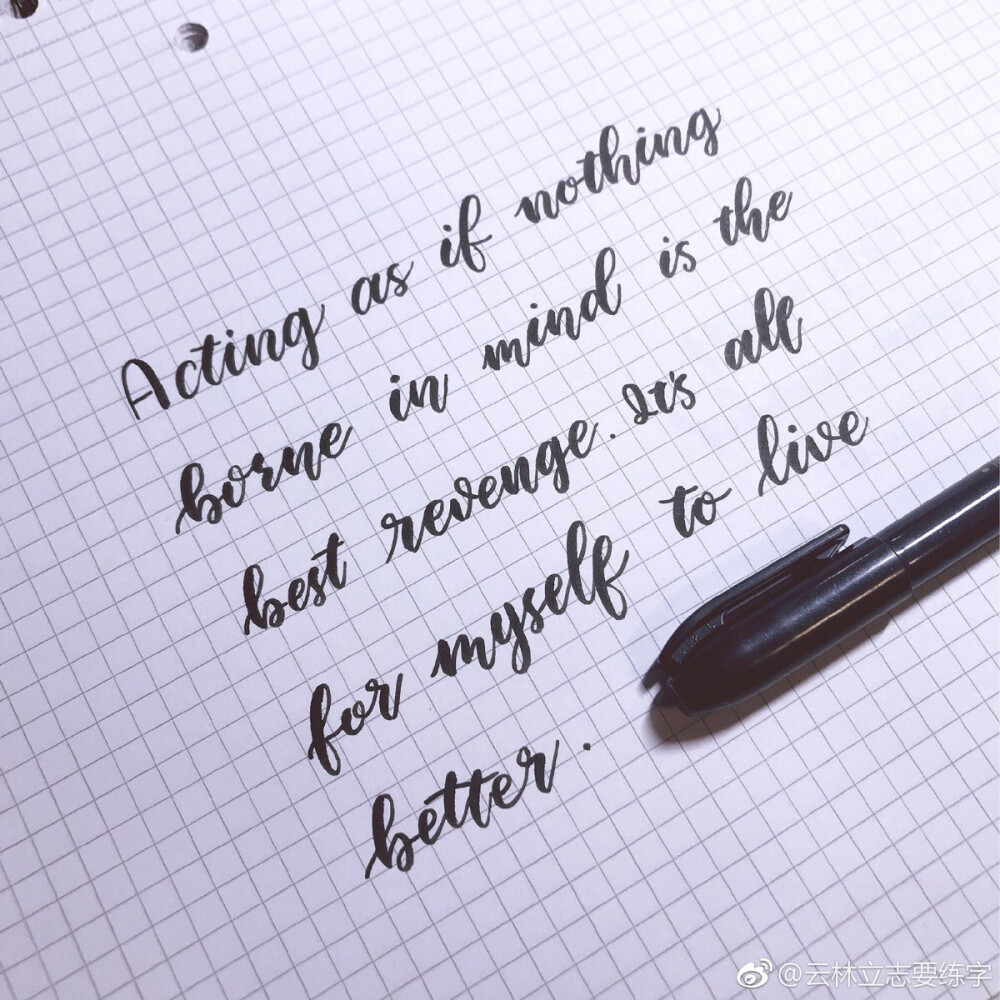 Acting as if nothing
borne in mind is the
best revenge. It's all
for myself to live
better.
@云林立志要练字